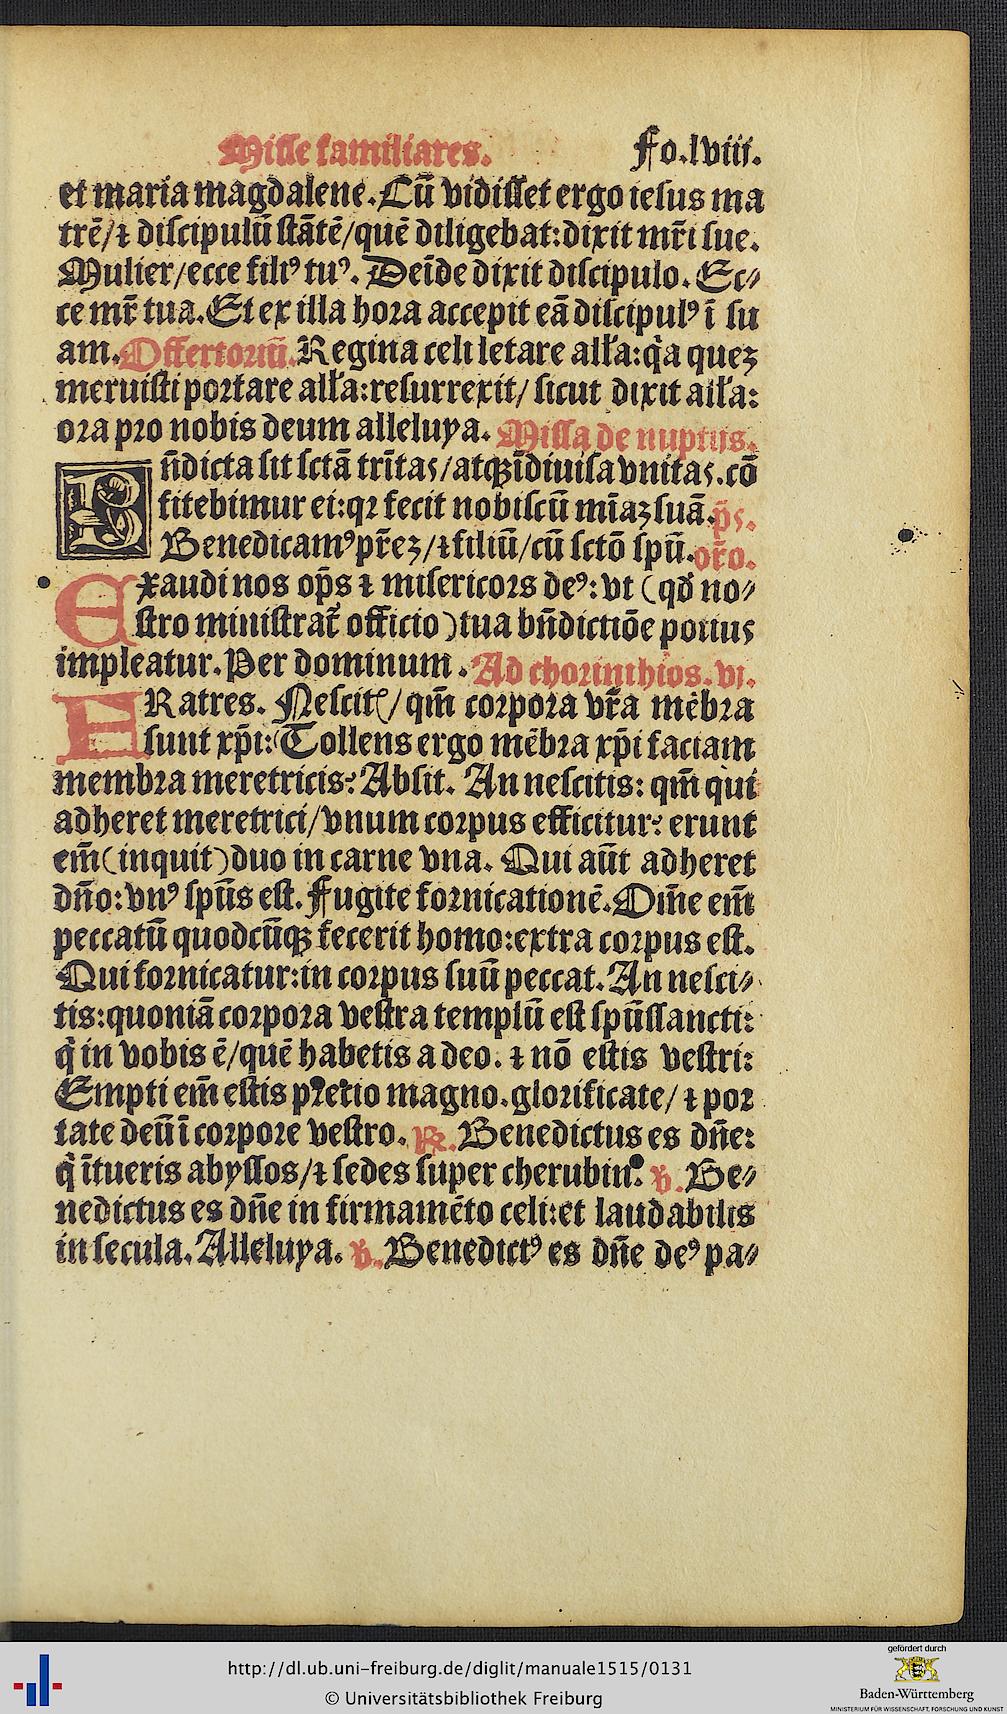 Misse familiares. Fo.lviii.
et maria magdalene. Cū vidisset ergo iesus ma
trē/⁊ discipulū stātē/quē diligebat: dixit mr̄i sue.
Mulier/ecce filiꝰ tuꝰ. Deīde dixit discipulo. Ec⸗
ce mr̄ tua. Et ex illa hora accepit eā discipulꝰ ī su
am. Offertoriū. Regina celi letare alľa: q̇a quez
meruisti portare alľa: resurrexit/ sicut dixit alľa:
ora pro nobis deum alleluya. Missa de nuptijs.
Bn̄dicta sit sctā trīitas/atqꝫ īdiuisa vnitas. cō
fitebimur ei: qꝛ fecit nobiscū mīaꝫ suā. p̄s.
Benedicamꝰ pr̄eꝫ/⁊ filiū/cū sctō spū. or̄o.
Exaudi nos op̄s ⁊ misericors deꝰ: vt (qd̄ no⸗
stro ministrat̄ officio) tua bn̄dictiōe potius
impleatur. Per dominum. Ad chorinthios. vi.
FRatres. Nescitꝭ/ qm̄ corpora vr̄a mēbra
sunt xp̄i: Tollens ergo mēbra xp̄i faciam
membra meretricis? Absit. An nescitis: qm̄ qui
adheret meretrici/vnum corpus efficitur? erunt
em̄ (inquit) duo in carne vna. Qui aūt adheret
dn̄o: vnꝰ spūs est. Fugite fornicationē. Om̄e em̄
peccatū quodcūqꝫ fecerit homo: extra corpus est.
Qui fornicatur: in corpus suū peccat. An nesci⸗
tis: quoniā corpora vestra templū est spūssancti:
q̇ in vobis ē/quē habetis a deo. ⁊ nō estis vestri:
Empti em̄ estis precio magno. glorificate/ ⁊ por
tate deū ī corpore vestro. ℟. Benedictus es dn̄e:
q̇ ītueris abyssos/⁊ sedes super cherubin. ℣. Be⸗
nedictus es dn̄e in firmamēto celi: et laudabilis
in secula. Alleluya. ℣. Benedictꝰ es dn̄e deꝰ pa⸗
http://dl.ub.uni-freiburg.de/diglit/manuale1515/0131
© Universitätsbibliothek Freiburg
gefördert durch
Baden-Württemberg
MINISTERIUM FÜR WISSENSCHAFT, FORSCHUNG UND KUNST